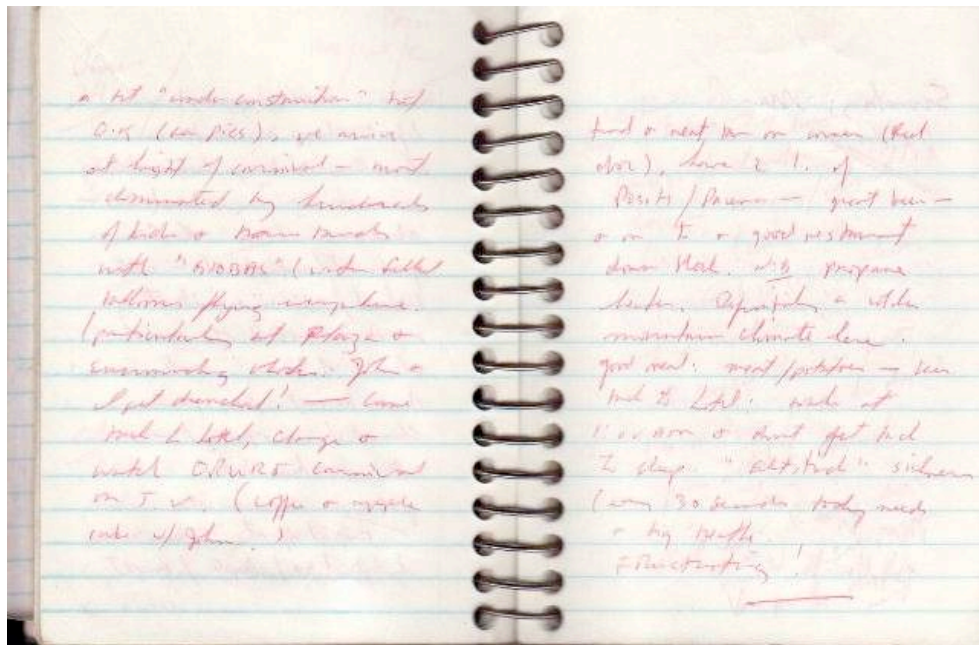 a bit "under construction" but
O.K (see pics), we arrive
at height of carnival - most
dominated by hundreds
of kids &
with "GLOBAS" (water filled
balloons flying everywhere.
(particularly at Plaza &
surrounding blocks. John &
I get drenched! — come
back to hotel, change &
watch ORURO carnival
on T.V. (coffee &
cake w/ John.)
find a neat bar on corner (Red
door), have 2 1. of
/ - great beer -
& on to a good restaurant
down block. propane
heater. Definitely a colder
mountain climate here.
good meal: meat/potatoes -
back to hotel: wake at
1:00 AM & don't get back
to sleep. "altitude" sickness
(every 30 seconds body needs
a big breath.
Frustrating!